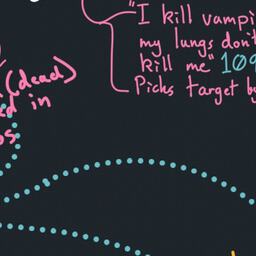 "I kill vampi
my lungs don't
kill me" 109
Picks target by
(dead)
ed in
os